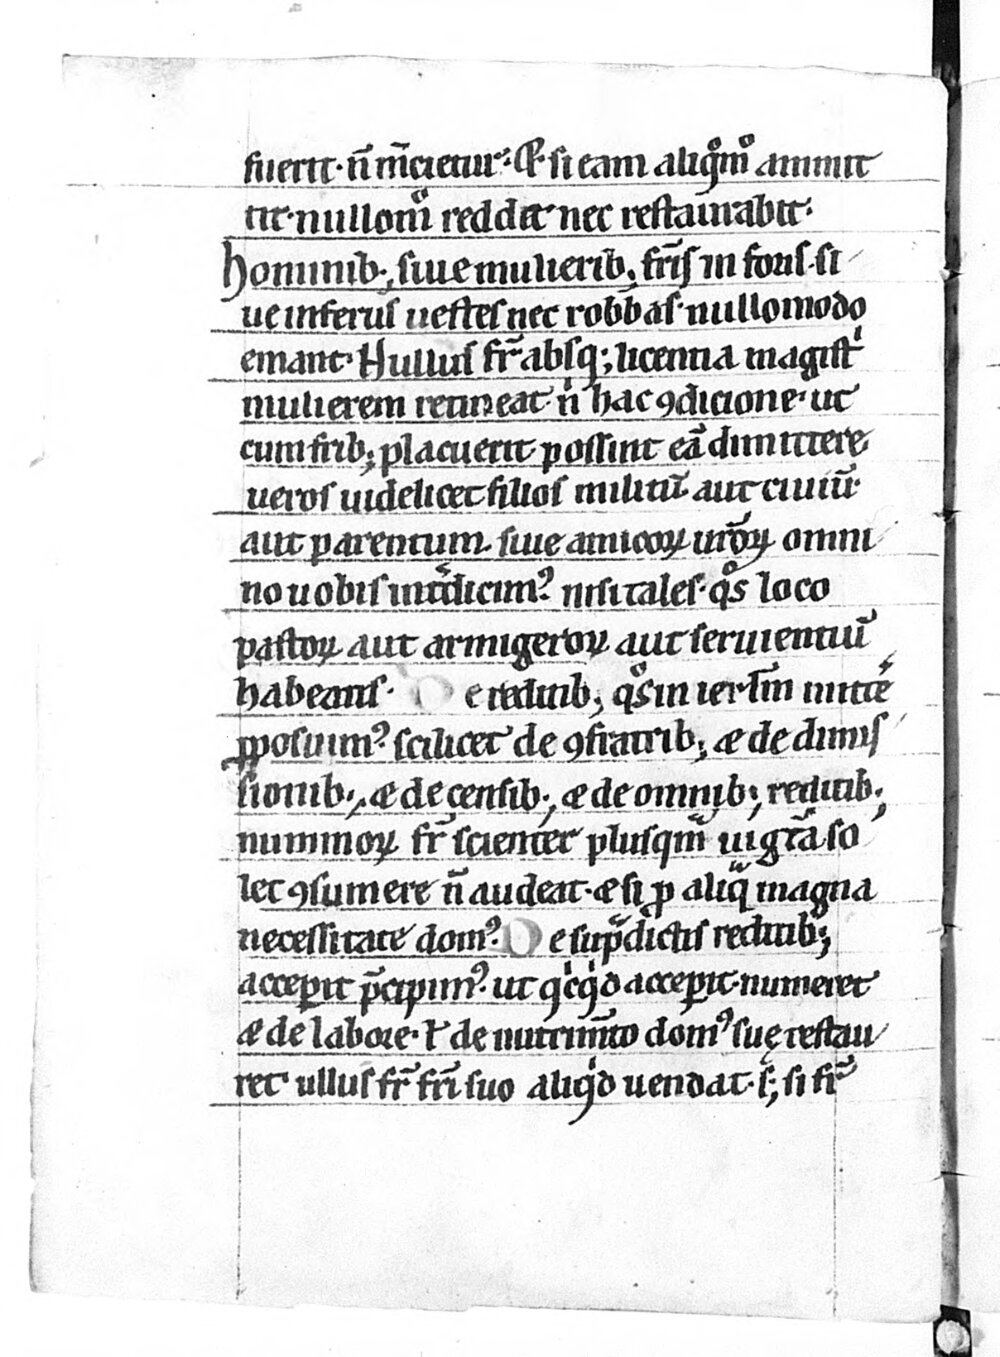 fuerit· n̄ m̄cietur· Q̃· si eam aliqͦmͦ ammit
tit· nullomͦ reddet nec restaurabit·
hominib; siue mulierib; fr̄is in foris· si
ue inferus uestes nec robbas· nullomodo
emant· Nullus fr̄ absq; licentia magistͥ
mulierem retineat· nͥ hac ꝯdicione· ut
cum frīb; placuerit possint eā dimittere
ueros uidelicet filios militū aut ciuiū·
aut parentum· siue amicoꝝ uroꝝ omni
no uobis int̄dicimꝰ nisi tales· qͦs loco
pastoꝝ aut armigeroꝝ aut seruientiū
habeatis· De reditib; qͦs in ierłm mitte᷑
ꝓposuimꝰ scilicet de ꝯfratrib; æ de dimis
sionib; æ de censib; æ de omnib; reditib;
nummoꝝ fr̄ scienter plusqm̄ uigͥtā so
let ꝯsumere n̄ audeat· æ si ꝓ aliqͣ magna
necessitate domꝰ· De supͣdictis reditib;
acceꝑit p̄cipimꝰ· ut qͥcqͥd acceꝑit· numeret
æ de labore· ł de nutrim̄to domꝰ suę restau
ret ullus fr̄ fr̄i suo aliqͥd uendat· s; si fr̄